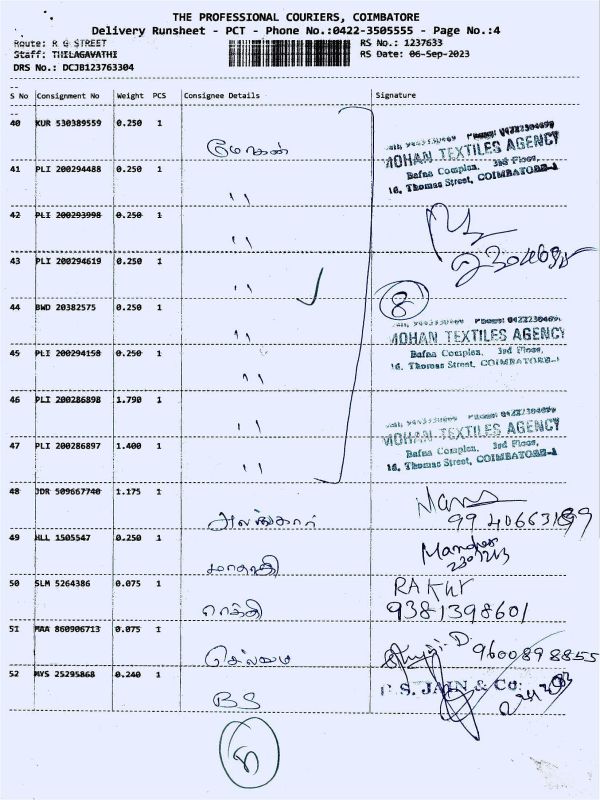 THE PROFESSIONAL COURIERS, COIMBATORE
Delivery Runsheet - PCT - Phone No.:0422-3505555 - Page No.:4
Route: R G STREET
RS No.: 1237633
Staff: THILAGAVATHI
RS Date: 06-Sep-2023
DRS No.: DCJB123763304
S No Consignment No Weight PCS Consignee Details Signature
40 KUR 530389559 0.250 1 மோகன்
MOHAN TEXTILES AGENCY
Bafna Complex, 3rd Floor,
16, Thomas Street, COIMBATORE-1
41 PLI 200294488 0.250 1 ''
42 PLI 200293998 0.250 1 ''
43 PLI 200294619 0.250 1 ''
44 BWD 20382575 0.250 1 ''
8
MOHAN TEXTILES AGENCY
Bafna Complex, 3rd Floor,
16, Thomas Street, COIMBATORE-1
45 PLI 200294150 0.250 1 ''
46 PLI 200286898 1.790 1 ''
MOHAN TEXTILES AGENCY
Bafna Complex, 3rd Floor,
16, Thomas Street, COIMBATORE-1
47 PLI 200286897 1.400 1 ''
48 JDR 509667740 1.175 1 அலங்கார்
49 HLL 1505547 0.250 1
50 SLM 5264386 0.075 1 ராக்கி
9381398601
51 MAA 860906713 0.075 1 செல்மை
9600898855
52 MYS 25295868 0.240 1 BS
P. S. JAIN & Co.